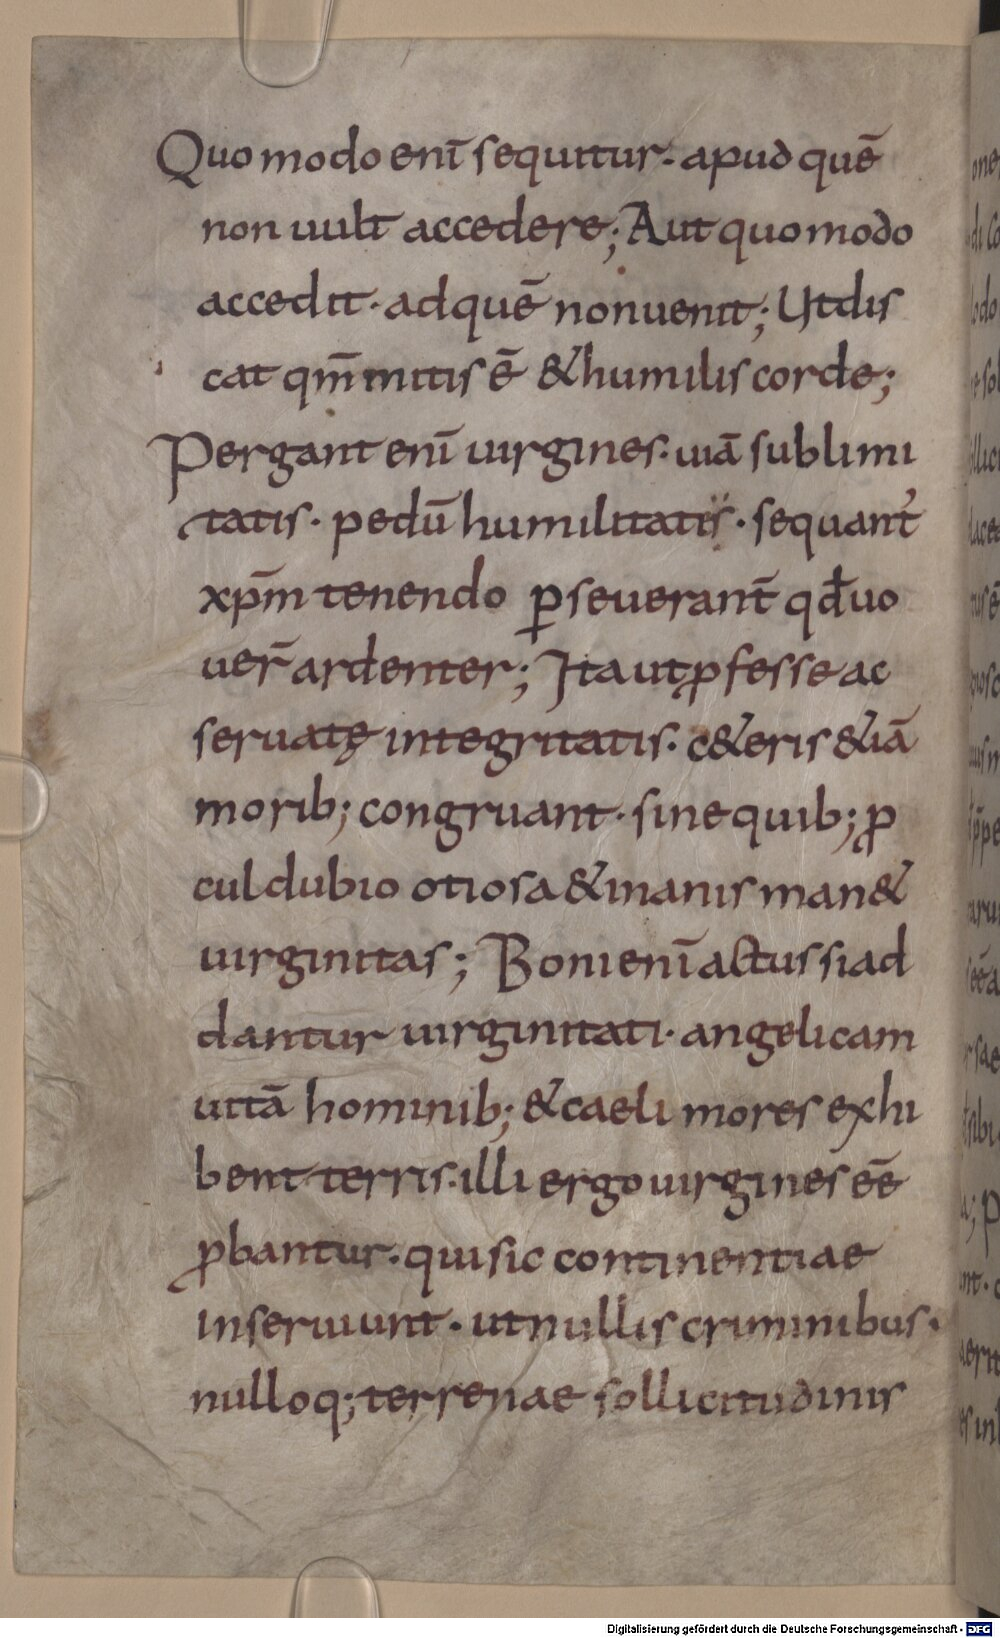 Quomodo enī sequitur· apud quē
non uult accedere; Aut quomodo
accedit· ad quē non uenit; Ut dis
cat qm̄ mitis ē & humilis corde;
Pergant enī uirgines· uiā sublimi
tatis· pedū humilitatis· sequant᾿
xp̄m tenendo ꝑseuerant̄ qđ uo
uer̄ ardenter; Ita ut ꝓfesse ac
seruatę integritatis· c&eris &iā
morib; congruant· sine quib; ꝓ
culdubio otiosa & inanis man&
uirginitas; Boni enī actus si ad
dantur uirginitati· angelicam
uitā hominib; & caeli mores exhi
bent terris· illi ergo uirgines eē
ꝓbantur· qui sic continentiae
inseruiunt· ut nullis criminibus·
nulloq; terrenae sollicitudinis
Digitalisierung gefördert durch die Deutsche Forschungsgemeinschaft - DFG